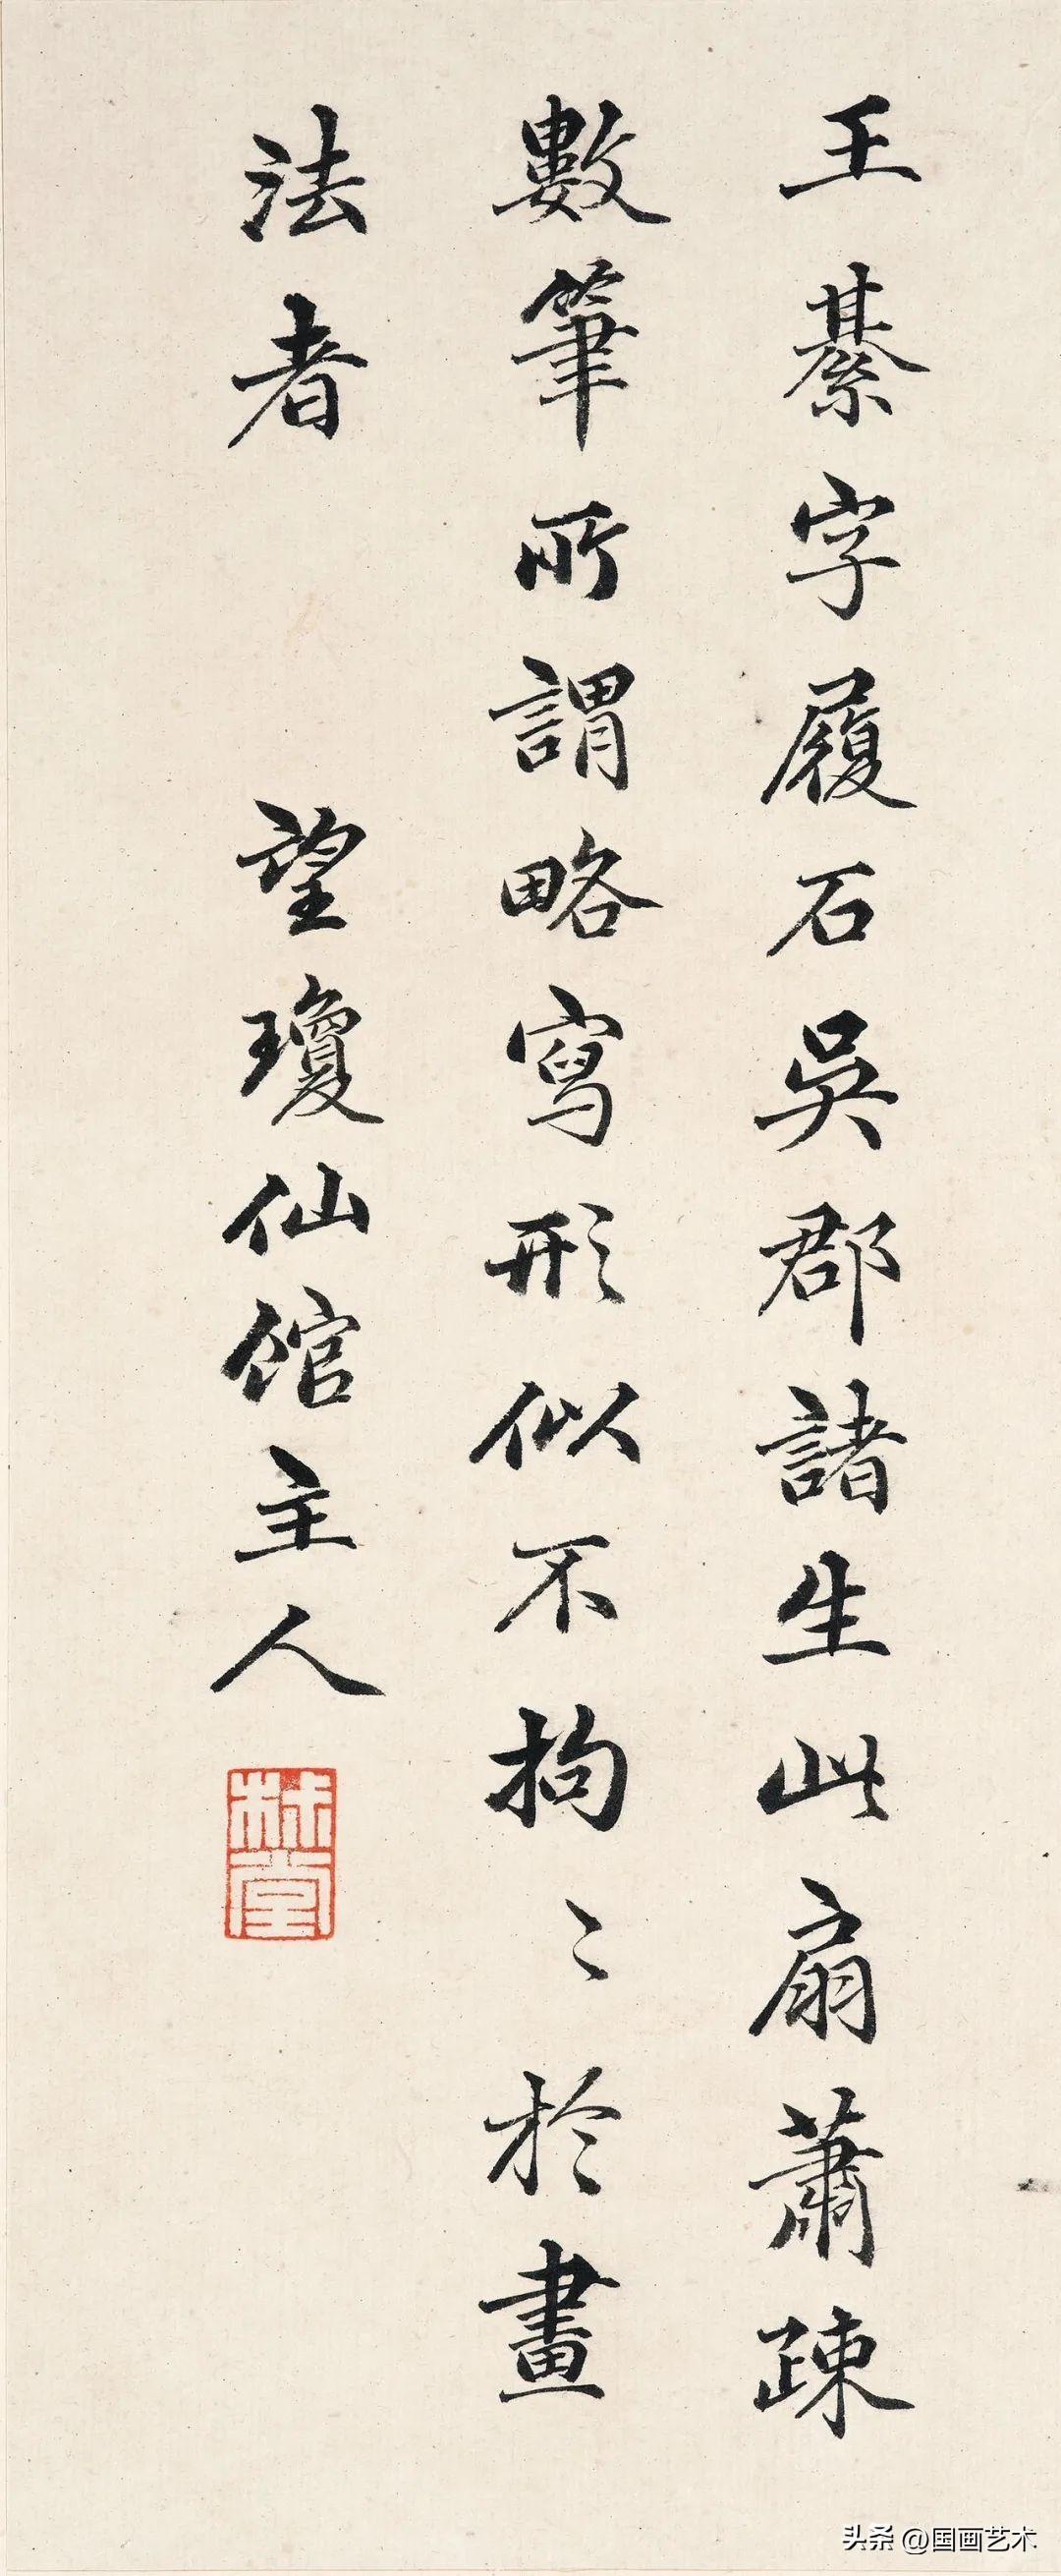 王綦字履石吳郡諸生此扇蕭疎
數筆所謂略寫形似不拘〻於畫
法者 望瓊仙館主人
林堂
头条 @国画艺术